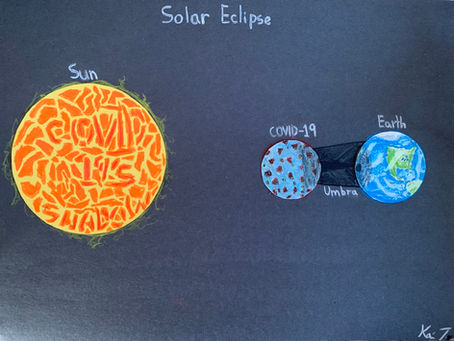 Solar Eclipse
Sun
COVID
19'S
SHADOW
COVID-19
Earth
Umbra
Kai T.